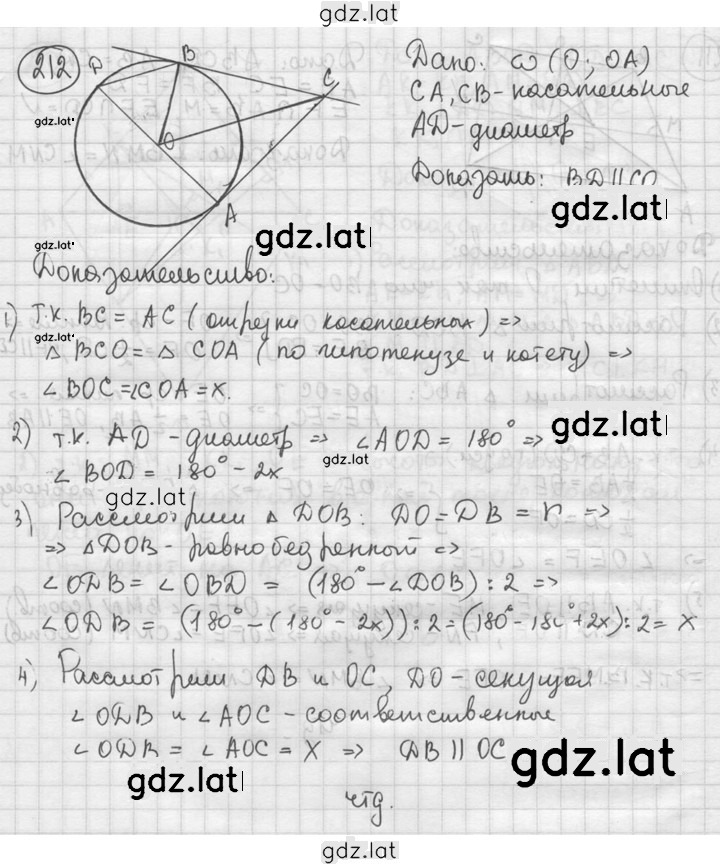 gdz.lat
212
D
B
C
O
A
gdz.lat
gdz.lat
Дано: ω (O; OA)
CA, CB - касательные
AD - диаметр
Доказать: BD || CO
gdz.lat
gdz.lat
Доказательство:
1) т.к. BC = AC (отрезки касательных) =>
△ BCO = △ COA (по гипотенузе и катету) =>
∠BOC = ∠COA = X.
gdz.lat
2) т.к. AD - диаметр => ∠AOD = 180° =>
gdz.lat
∠BOD = 180° - 2x
gdz.lat
3) Рассмотрим △ DOB: DO = DB = r =>
=> △DOB - равнобедренный =>
∠ODB = ∠OBD = (180° - ∠DOB) : 2 =>
∠ODB = (180° - (180° - 2x)) : 2 = (180° - 180° + 2x) : 2 = X
4) Рассмотрим DB и OC, DO - секущая
∠ODB и ∠AOC - соответственные
∠ODB = ∠AOC = X => DB || OC
gdz.lat
gdz.lat
чтд.
gdz.lat